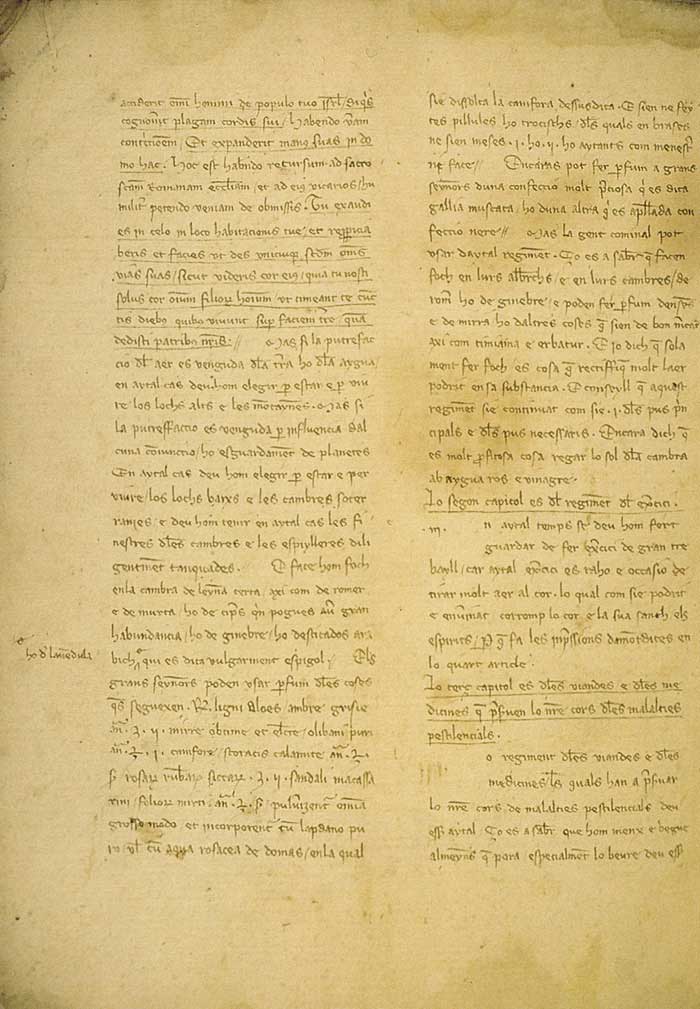 acciderit omi homini de populo tuo isrl / si qͥs
cognouit plagam cordis sui / habendo ueram
contricionem. Et expanderit manus suas in do
mo hac. hoc est habendo recursum ad sacro
scam Romanam eccliam / et ad eius uicarios / hu
militer petendo ueniam de obmissis. Tu exaudi
es in celo in loco habitacionis tue / et
beris et facies ut des unicuiqꝫ scdm oms
uias suas / sicut uideris cor eius / quia tu nosti
solus cor oium filioꝝ hoium ut timeant te cūc
tis diebꝫ quibꝫ uiuunt suꝑ faciem tre / quā
dedisti patribus nris // Mas si la putrefac
cio dl aer es uenguda dla tr̄ra ho dla aygua
en aytal cas deu hom elegir ꝑ estar e ꝑ uiu
re los lochs alts e les mōtaynes. Mas si
la putreffaccio es uenguda ꝑ influencia dal
cuna coniunctio / ho esguardament de planetes
En aytal cas deu hom elegir ꝑ estar e per
uiure / los lochs baxs e les cambres soter
ranies / e deu hom tenir en aytal cas les fi
nestres dles cambres e les espiylleres dili
gentment tanquades. E face hom foch
en la cambra de leyna certa / axi com de romer
e de murta / ho de cips q̄n pogues au gran
habundancia / ho de ginebre / ho desticados ara
bich / qui es dita uulgarment espigol / Els
ho d lauēdula
grans seynors poden usar ꝑfum dles coses
qs seguexen. R. ligni aloes ambre grisie
an̄. ʒ. ii. mirre obtime et elcte / olibani puri
an̄. ʒ. i. camfore / storacis calamite an̄. ʒ.
ß rosaꝝ rubeaꝝ siccaꝝ. ʒ. ii. sandali macassa
rini / folioꝝ mirti. an̄. ʒ. ß. pulu'izent omīa
grosso modo et incorporent cū lapdano pu
ro / ul cū aqua rosacea de domas / en la qual
sie dissolta la camfora dessusdita. E si en ne fey
tes pillules ho trocischs / dls quals en brases
ne sien meses . i. ho . ii. ho aytants com menest
ne face // Encaras pot fer ꝑfum a grans
seynors duna confeccio molt pciosa q es dita
gallia muscata / ho duna altra q es apllada con
feccio nere // Mas la gent cominal pot
usar daytal regimēt. Ço es a sabr q facen
foch en lurs albrchs / e en lurs cambres / de
romi ho de ginebre / e poden fer ꝑfum densēs
e de mirra ho daltres coses q sien de bon mcat
axi com timiama e erbatur. E io dich q sola
ment fer foch es cosa q rectiffiq molt laer
podrit en sa substancia. E conseyll q aquest
regimēt sie continuat com sie . i. dls pus pin
cipals e dls pus necessaris. Encara dich q
es molt ꝑfitosa cosa regar lo sol dla cambra
ab aygua ros e uinagre.
Lo segon capitol es dl regimēt dl exēcici.
n aytal temps se deu hom fort
guardar de fer exēcici de gran tre
bayll / car aytal exēcici es raho e occasio de
tirar molt aer al cor. lo qual com sie podrit
e enuiniat corromp lo cor e la sua sanch els
espirits / ꝑ q fa les inpssions damōtdites en
lo quart article.
Lo terç capitol es dles uiandes e dles me
dicines q psuen lo nre cors dles malalties
pestilencials.
o regiment dles uiandes e dles
medicines / ls quals han a psuar
lo nre cors de malalties pestilencials deu
ess aytal. Ço es a sabr que hom menx e begue
almeyns q pora especialmēt lo beure deu ess